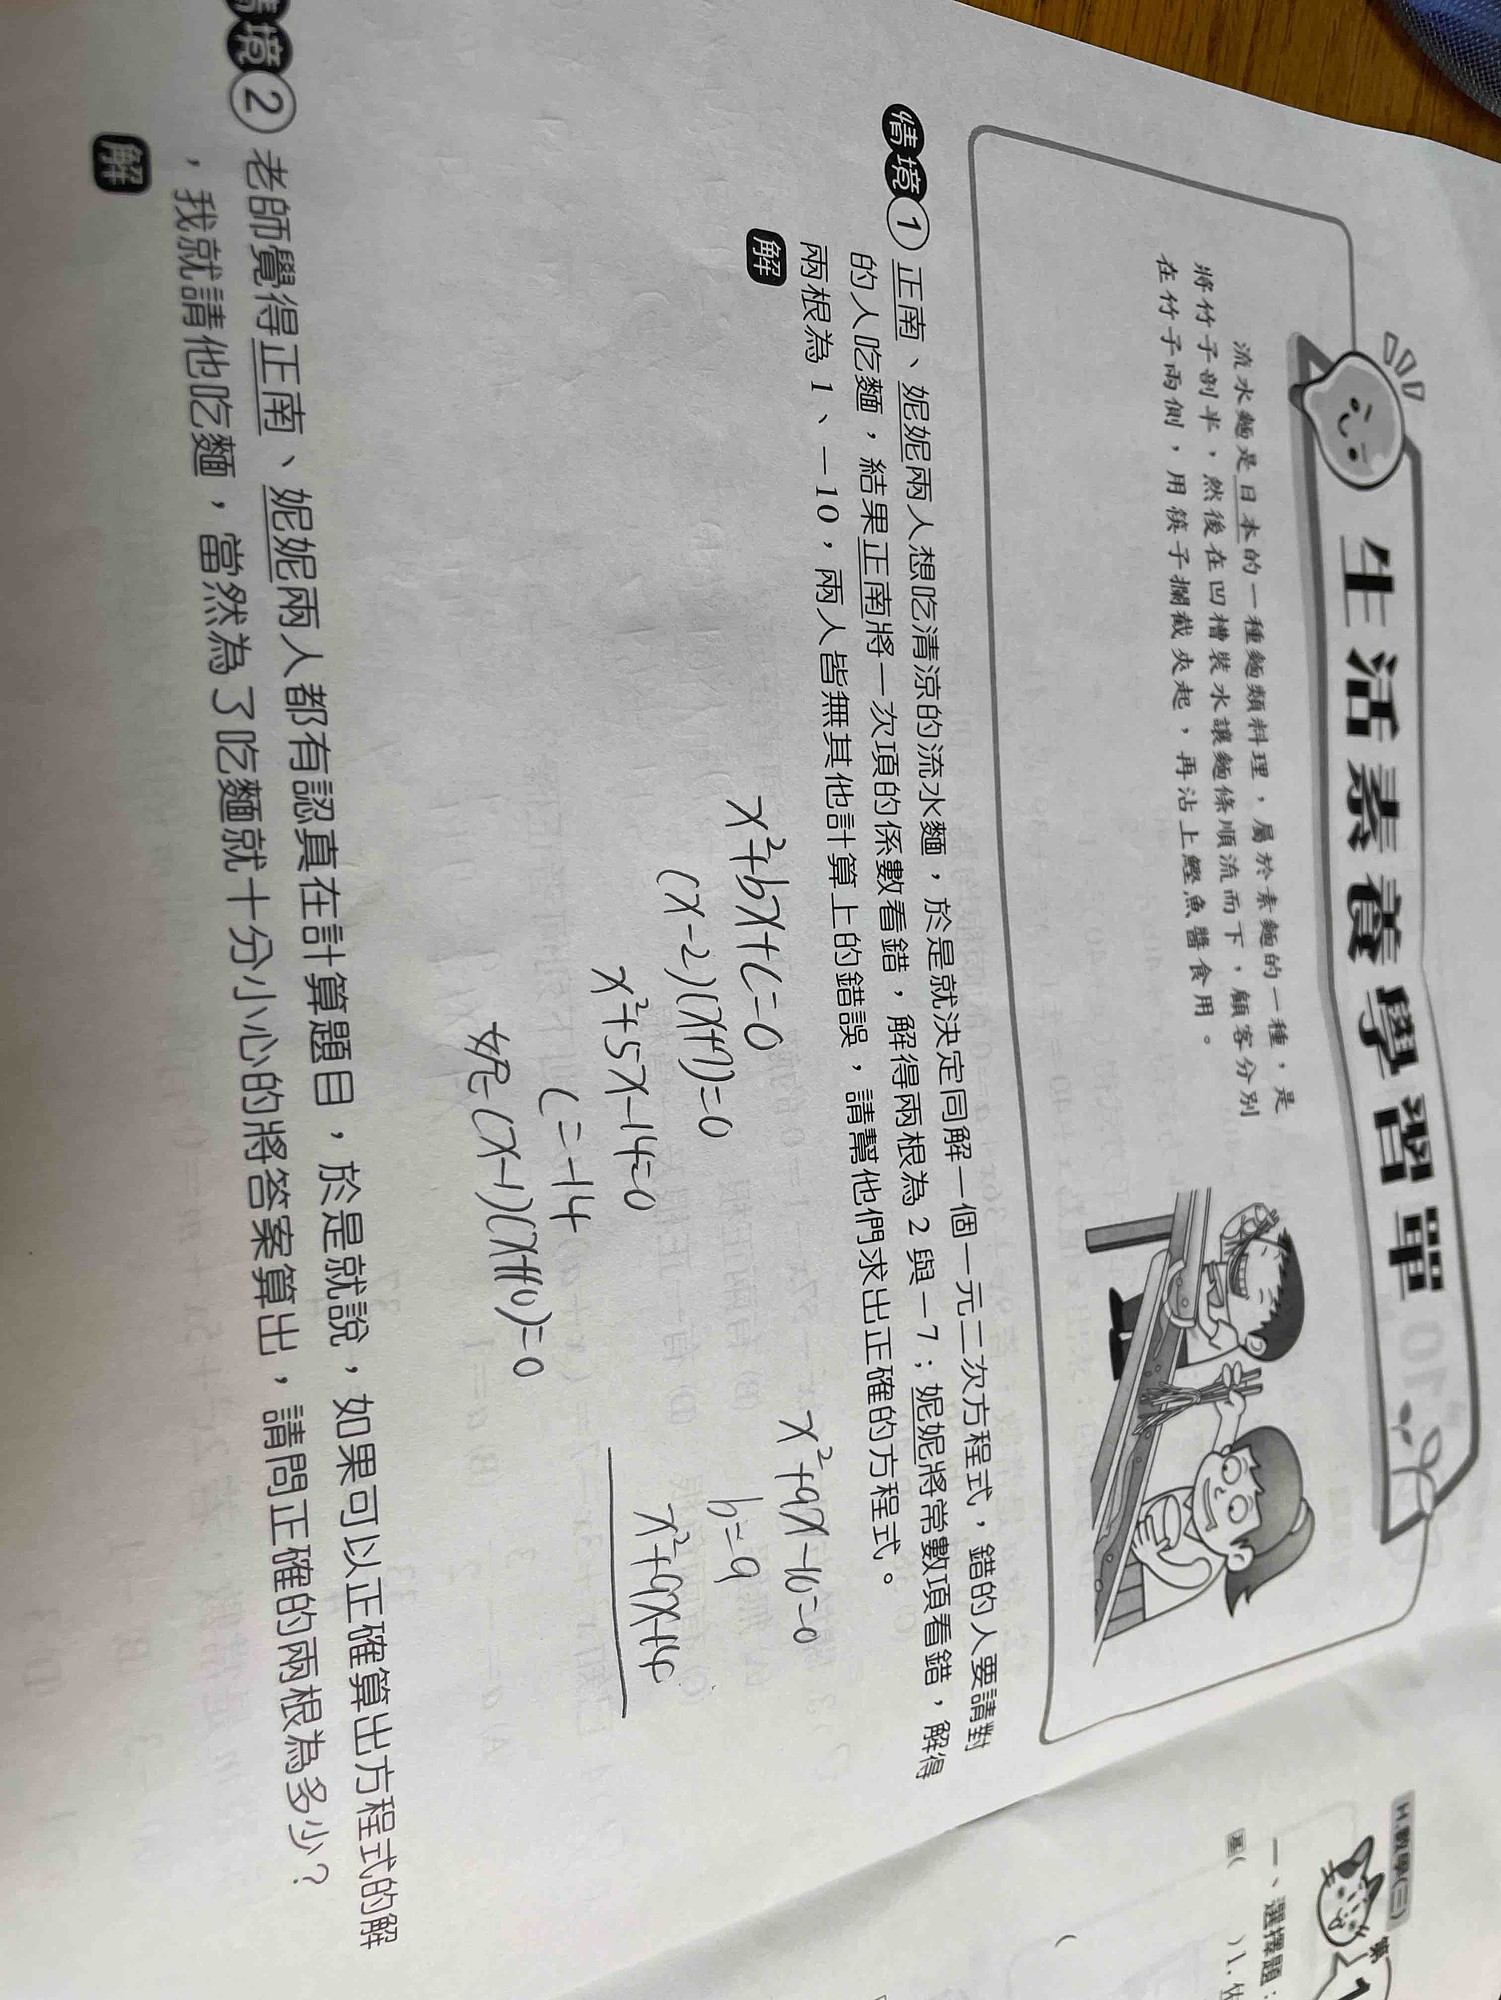 生活素養學習單
流水麵是日本的一種麵類料理，屬於素麵的一種，是
將竹子剖半，然後在凹槽裝水讓麵條順流而下，顧客分別
在竹子兩側，用筷子攔截夾起，再沾上鰹魚醬食用。
情境1 正南、妮妮兩人想吃清涼的流水麵，於是就決定同解一個一元二次方程式，錯的人要請對
的人吃麵，結果正南將一次項的係數看錯，解得兩根為2與－7；妮妮將常數項看錯，解得
兩根為1、－10，兩人皆無其他計算上的錯誤，請幫他們求出正確的方程式。
解
x²+bx+c=0
(x-2)(x+7)=0
x²+5x-14=0
c=-14
妮=(x-1)(x+10)=0
x²+9x-10=0
b=9
x²+9x+14
情境2 老師覺得正南、妮妮兩人都有認真在計算題目，於是就說，如果可以正確算出方程式的解
，我就請他吃麵，當然為了吃麵就十分小心的將答案算出，請問正確的兩根為多少？
解
H.數學(三)
第1
一、選擇題：
基(　)1.